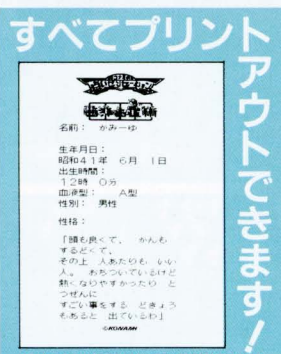 すべてプリントアウトできます!
名前： かみーゆ
生年月日：
昭和41年 6月 1日
出生時間：
12時 0分
血液型： A型
性別： 男性
性格：
「頭も良くて、 かんも
するどくて、
その上 人あたりも いい
人。 おちついているけど
熱くなりやすかったり と
つぜんに
すごい事をする どきょう
もあると 出ているわ」
©KONAMI